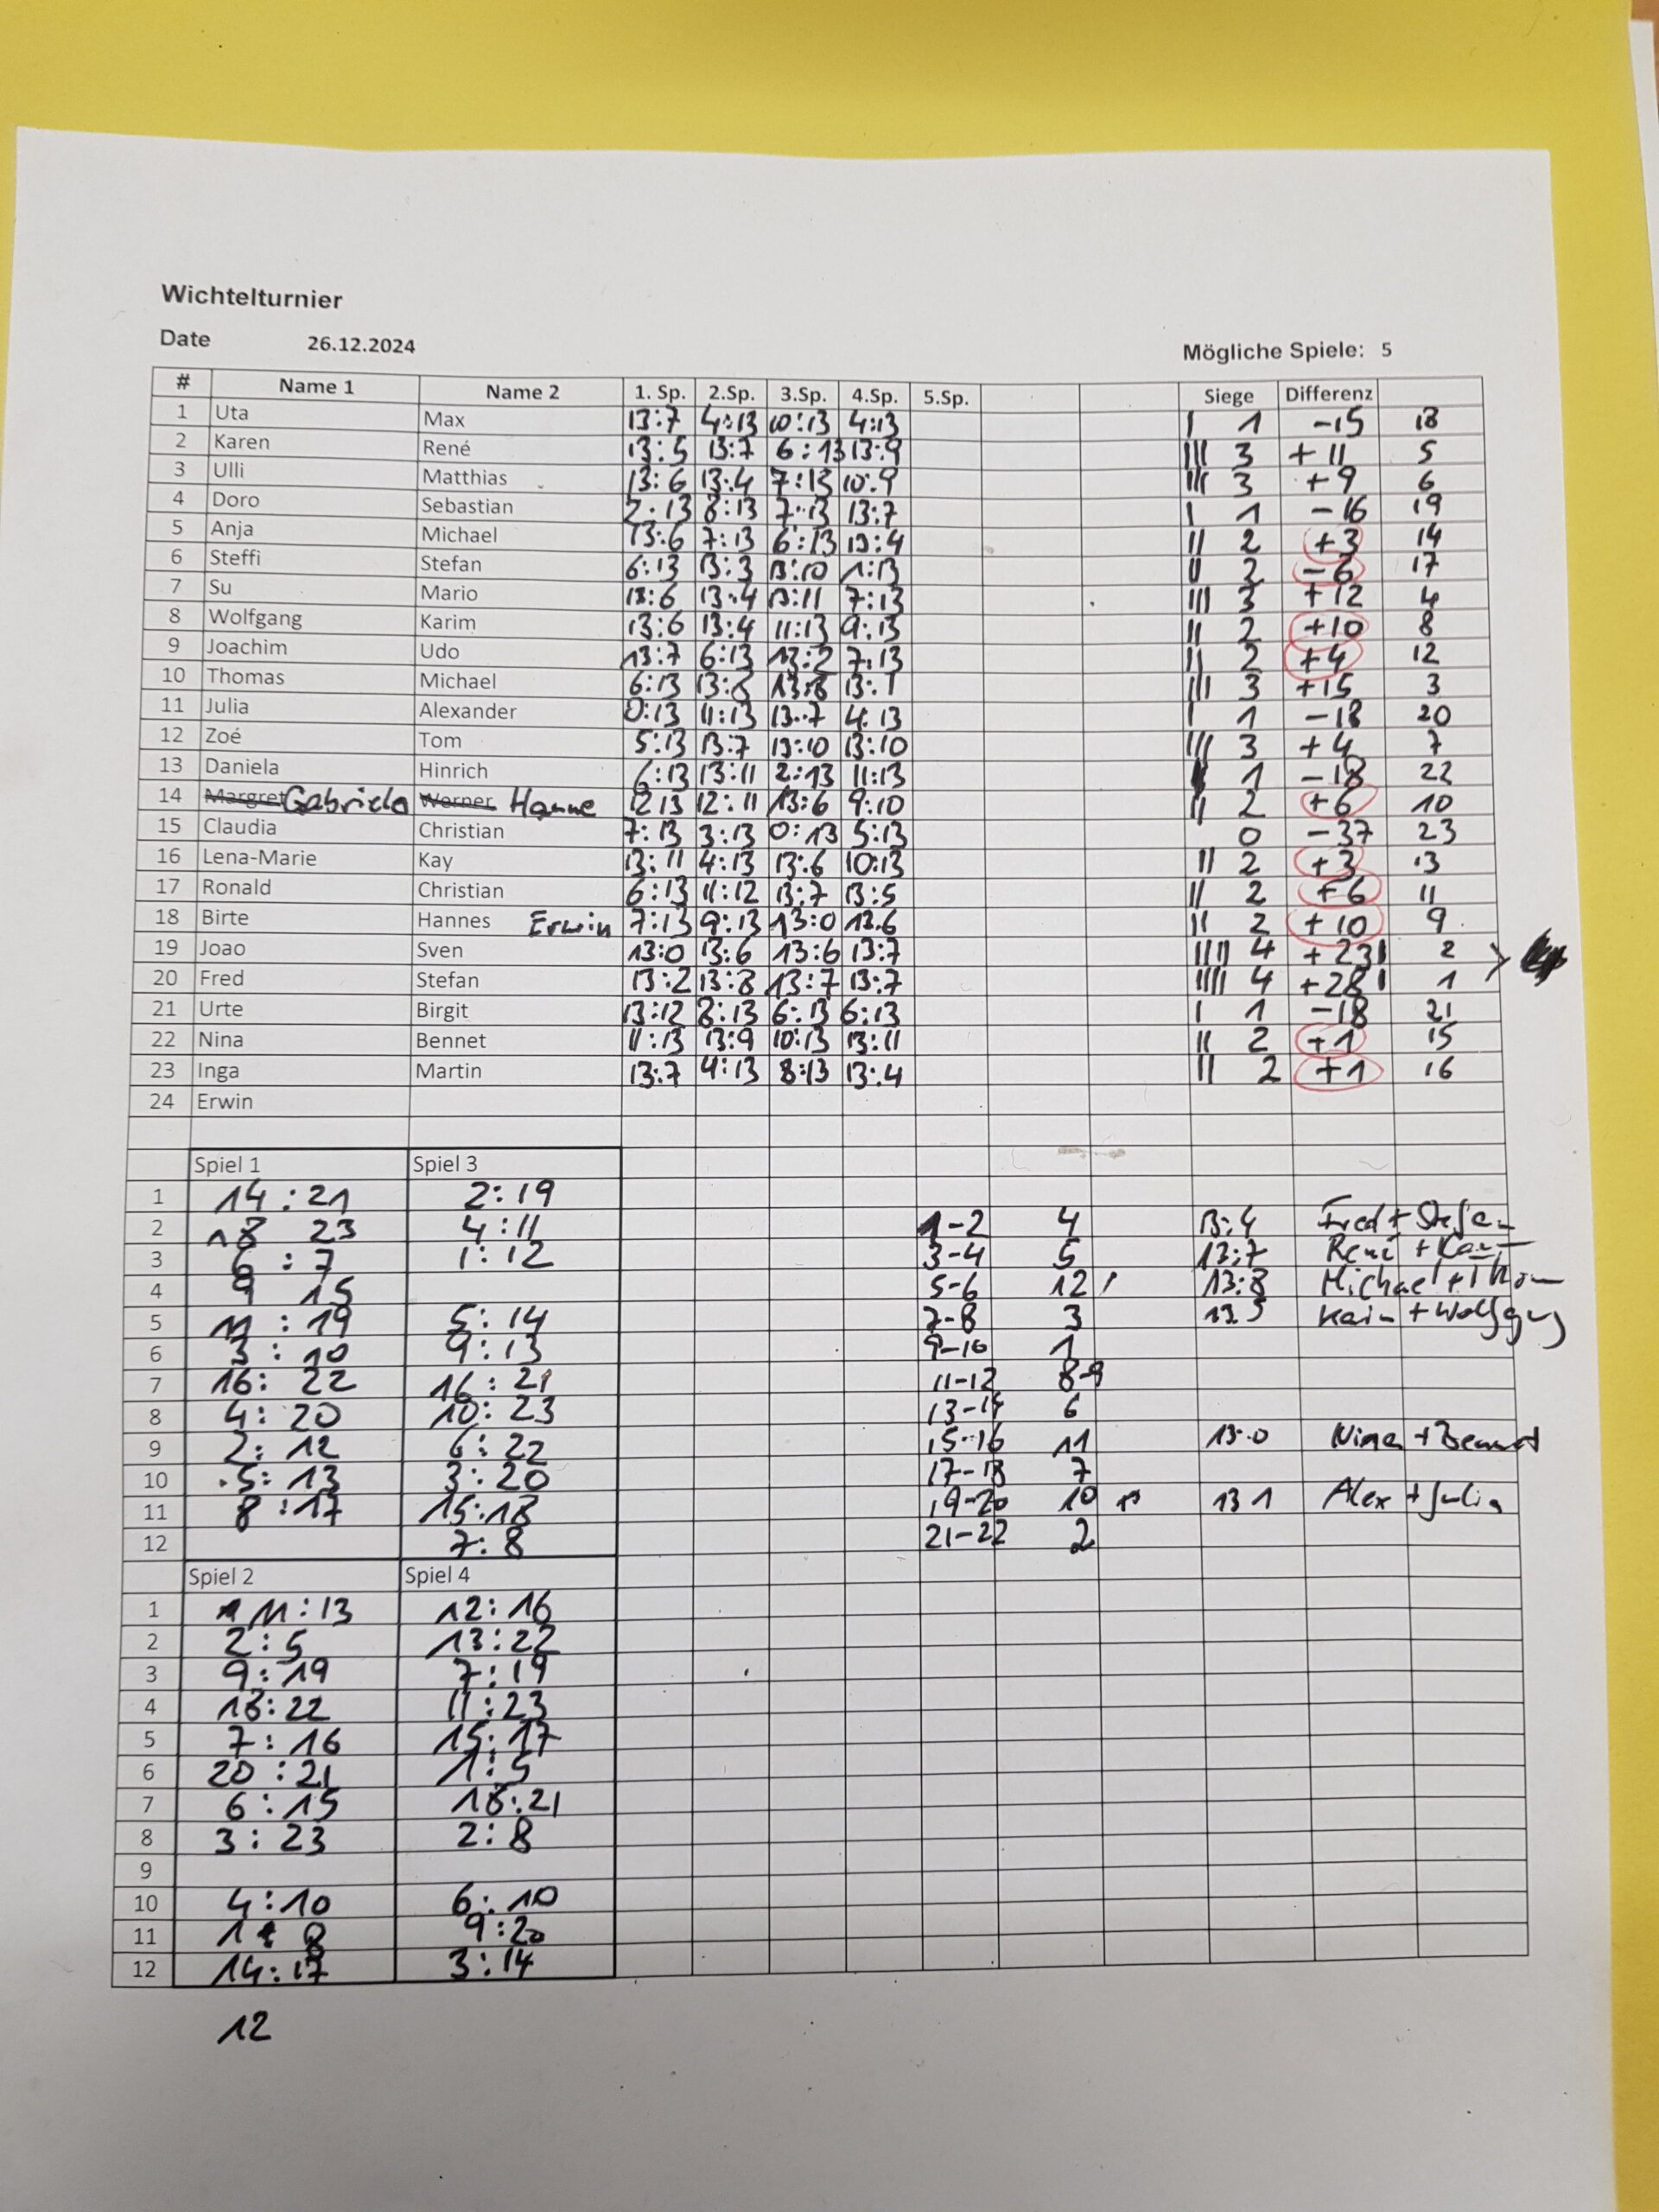 Wichtelturnier
Date 26.12.2024 Mögliche Spiele: 5
# Name 1 Name 2 1. Sp. 2.Sp. 3.Sp. 4.Sp. 5.Sp. Siege Differenz
1 Uta Max 13:7 4:13 10:13 4:13 | 1 -15 18
2 Karen René 13:5 13:7 6:13 13:9 ||| 3 +11 5
3 Ulli Matthias 13:6 13:4 7:13 10:9 ||| 3 +9 6
4 Doro Sebastian 2:13 8:13 7:13 13:7 | 1 -16 19
5 Anja Michael 13:6 7:13 6:13 13:4 || 2 +3 14
6 Steffi Stefan 6:13 13:3 13:10 1:13 || 2 -6 17
7 Su Mario 13:6 13:4 13:11 7:13 ||| 3 +12 4
8 Wolfgang Karim 13:6 13:4 11:13 9:13 || 2 +10 8
9 Joachim Udo 13:7 6:13 13:2 7:13 || 2 +4 12
10 Thomas Michael 6:13 13:8 13:8 13:1 ||| 3 +15 3
11 Julia Alexander 0:13 11:13 13:7 4:13 | 1 -18 20
12 Zoé Tom 5:13 13:7 13:10 13:10 ||| 3 +4 7
13 Daniela Hinrich 6:13 13:11 2:13 11:13 1 -18 22
14 Margret Gabriela Werner Hanne 12 13 12:11 13:6 9:10 || 2 +6 10
15 Claudia Christian 7:13 3:13 0:13 5:13 0 -37 23
16 Lena-Marie Kay 13:11 4:13 13:6 10:13 || 2 +3 13
17 Ronald Christian 6:13 11:12 13:7 13:5 || 2 +6 11
18 Birte Hannes Erwin 7:13 9:13 13:0 13:6 || 2 +10 9
19 Joao Sven 13:0 13:6 13:6 13:7 |||| 4 +23 | 2 >
20 Fred Stefan 13:2 13:8 13:7 13:7 |||| 4 +28 | 1
21 Urte Birgit 13:12 8:13 6:13 6:13 | 1 -18 21
22 Nina Bennet 11:13 13:9 10:13 13:11 || 2 +1 15
23 Inga Martin 13:7 4:13 8:13 13:4 || 2 +1 16
24 Erwin
Spiel 1 Spiel 3
1 14:21 2:19
2 18 23 4:11 1-2 4 13:4 Fred + Stefan
3 6:7 1:12 3-4 5 13:7 René + Karen
4 9 15 5-6 12 13:8 Michael + Thom
5 11:19 5:14 7-8 3 13 5 Karim + Wolfgang
6 3:10 9:13 9-10 1
7 16:22 16:21 11-12 8-9
8 4:20 10:23 13-14 6
9 2:12 6:22 15-16 11 13:0 Nina + Bennet
10 5:13 3:20 17-18 7
11 8:17 15:18 19-20 10 13 1 Alex + Julia
12 7:8 21-22 2
Spiel 2 Spiel 4
1 11:13 12:16
2 2:5 13:22
3 9:19 7:19
4 18:22 11:23
5 7:16 15:17
6 20:21 1:5
7 6:15 18:21
8 3:23 2:8
9
10 4:10 6:10
11 1 8 9:20
12 14:17 3:14
12